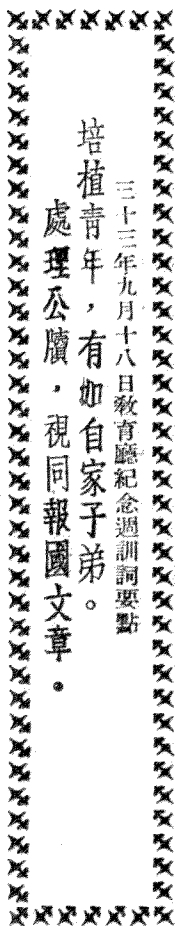 三十三年九月十八日敎育廳紀念週訓詞要點
培植靑年，有如自家子弟。
處理公牘，視同報國文章。